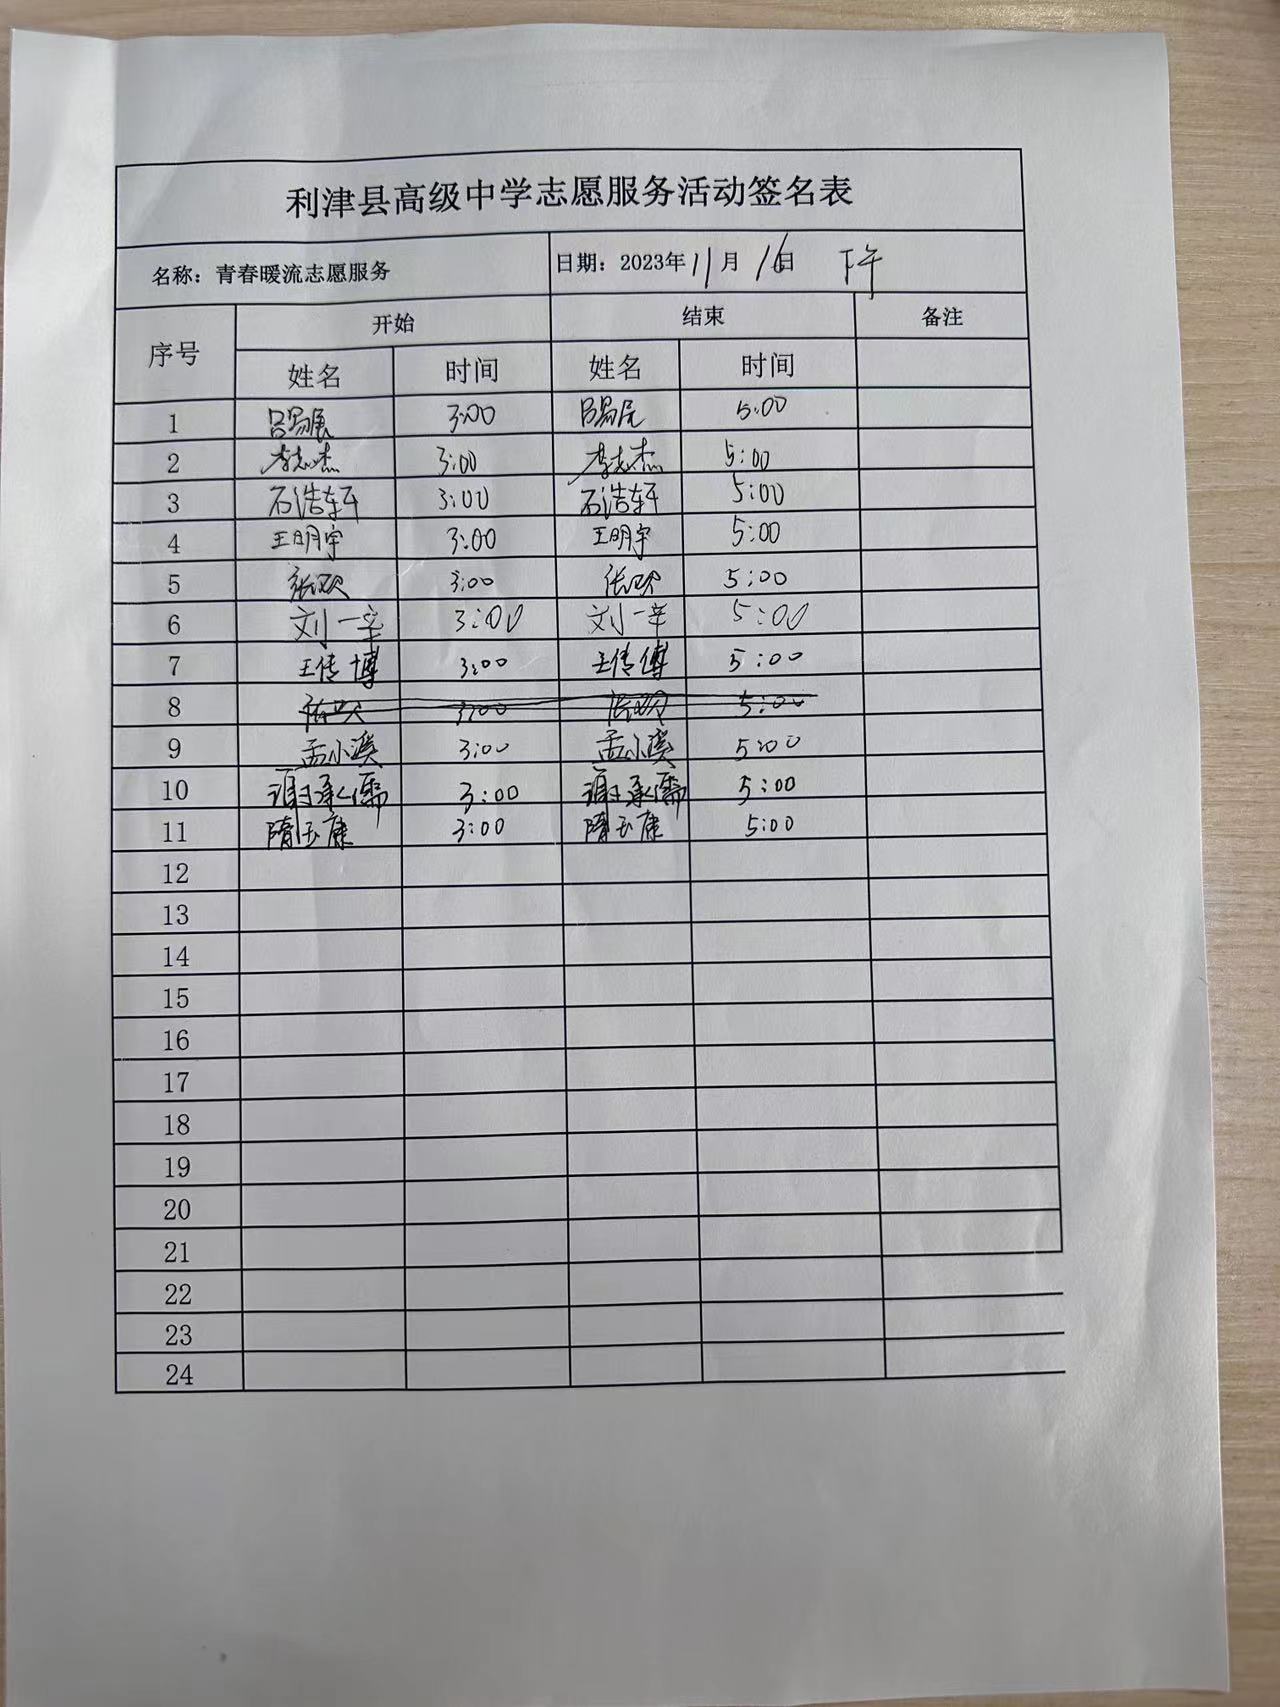 利津县高级中学志愿服务活动签名表
名称：青春暖流志愿服务 日期：2023年11月16日 下午
序号 开始 结束 备注
姓名 时间 姓名 时间
1 吕易展 3:00 吕易展 5:00
2 李志杰 3:00 李志杰 5:00
3 石浩轩 3:00 石浩轩 5:00
4 王明宇 3:00 王明宇 5:00
5 张欢 3:00 张欢 5:00
6 刘一辛 3:00 刘一辛 5:00
7 王传博 3:00 王传博 5:00
8 张欢 3:00 张欢 5:00
9 孟小溪 3:00 孟小溪 5:00
10 谢承儒 3:00 谢承儒 5:00
11 隋玉康 3:00 隋玉康 5:00
12
13
14
15
16
17
18
19
20
21
22
23
24